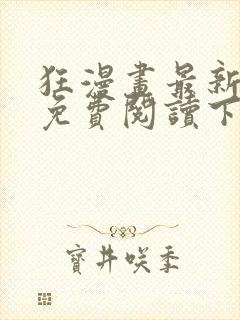 狂漫畫最新
免費閱讀下
寶井咲季